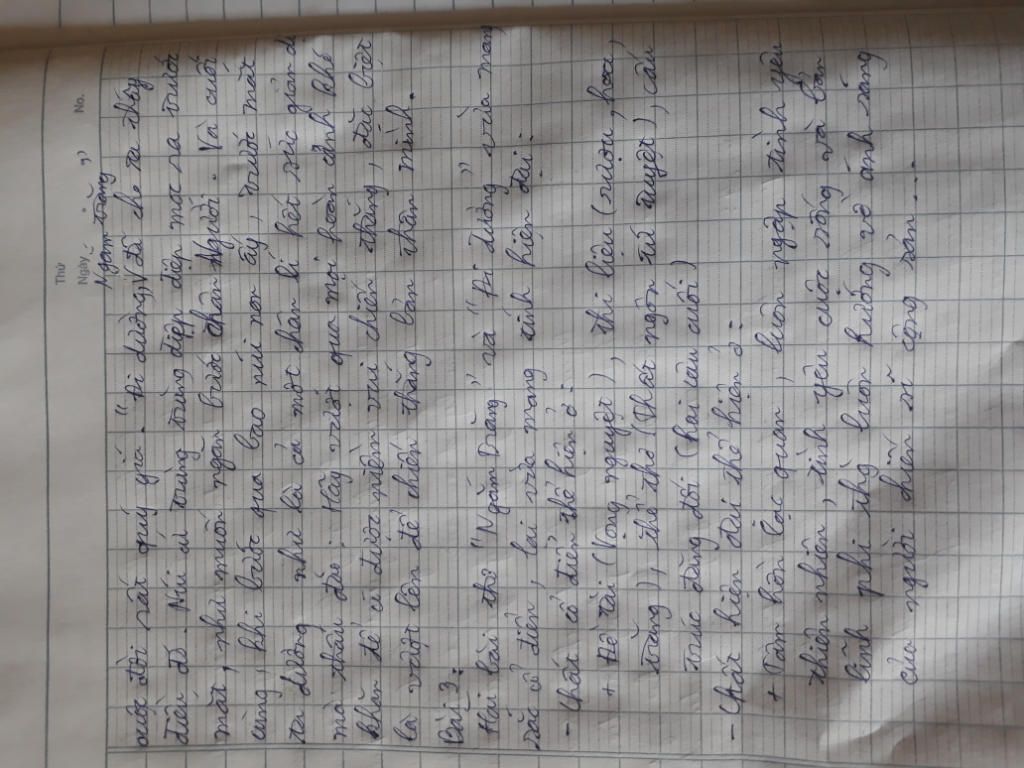 Thứ
Ngày No.
Ngắm trăng
cuộc đời rất quý giá. "Đi đường" đã cho ta thấy
điều đó. Núi cứ trùng trùng điệp điệp mọc ra trước
mắt, như muốn ngăn bước chân Người. Và cuối
cùng, khi bước qua bao núi non ấy, trước mắt
ta dường như là cả một chân lí hết sức giản dị
mà thấm đẫm: Hãy vượt qua mọi hoàn cảnh khó
khăn để có được niềm vui chiến thắng, đặc biệt
là vượt lên để chiến thắng bản thân mình.
Bài 3:
Hai bài thơ "Ngắm trăng" và "Đi đường" vừa mang
màu cổ điển, lại vừa mang tính hiện đại:
- Chất cổ điển thể hiện ở:
+ Đề tài (Vọng nguyệt), thi liệu (rượu, hoa,
trăng), thể thơ (thất ngôn tứ tuyệt), cấu
trúc đăng đối (hai câu cuối)
- Chất hiện đại thể hiện ở:
+ Tâm hồn lạc quan, luôn ngập tình yêu
thiên nhiên, tình yêu cuộc sống và bản
lĩnh phi thường luôn hướng về ánh sáng
của người chiến sĩ cộng sản...